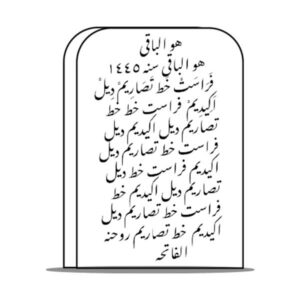 هو الباقی
هو الباقی سنه ١٤٤٥
فَرَاسَتْ خط تَصَاریمْ دیلْ
اکیدیمْ فراست خط خط
تصاریم دیل اکیدیم دیل
فراست خط تصاریم خط
اکیدیم فراست خط دیل
تصاریم دیل اکیدیم خط
فراست خط تصاریم دیل
اکیدیم خط تصاریم روحنه
الفاتحه